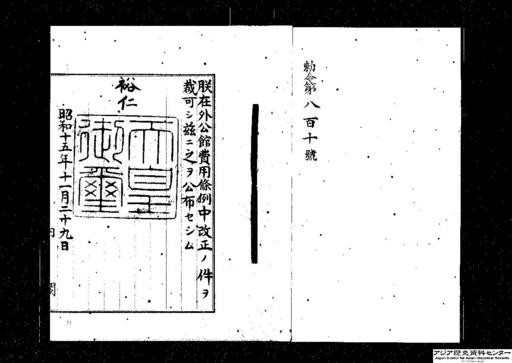 勅令第八百十號
朕在外公館費用條例中改正ノ件ヲ
裁可シ茲ニ之ヲ公布セシム
裕仁
天皇御璽
昭和十五年十一月二十九日
内閣
アジア歴史資料センター
Japan Center for Asian Historical Records